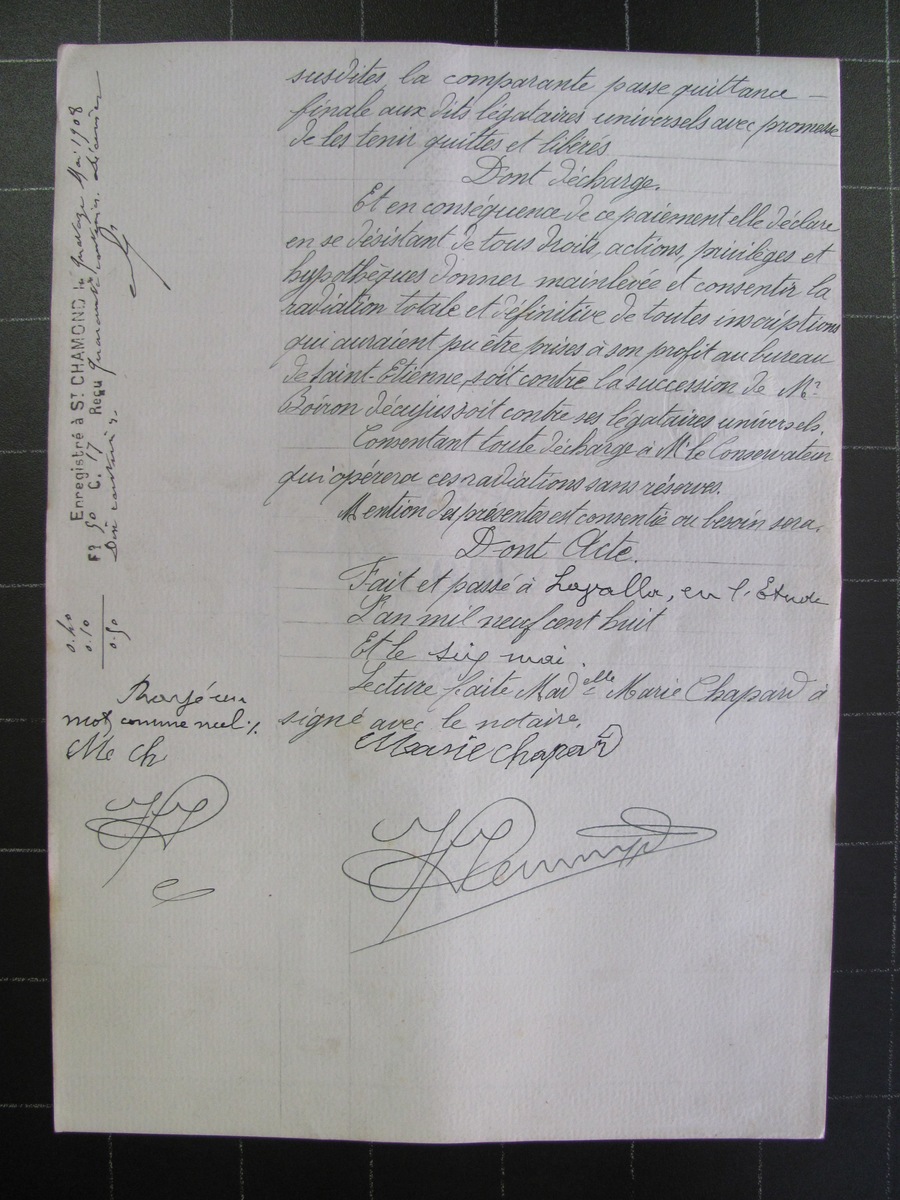 susdites, la comparante passe quittance —
finale aux dits légataires universels avec promesse
de les tenir quittes et libérés
Dont décharge.
Et en conséquence de ce paiement elle déclare
en se désistant de tous droits, actions, privilèges et
hypothèques donner mainlevée et consentir la
radiation totale et définitive de toutes inscriptions
qui auraient pu être prises à son profit au bureau
de Saint-Etienne, soit contre la succession de Mr
Boiron décujus soit contre ses légataires universels.
Consentant toute décharge à Mr le Conservateur
qui opérera ces radiations sans réserves.
Mention des présentes est consentie ou besoin sera.
Dont Acte.
Fait et passé à Lavalla, en l'Etude
L'an mil neuf cent huit
Et le six mai.
Lecture faite Madelle Marie Chapard à
signé avec le notaire.
Marie Chapard
Enregistré à St CHAMOND le quatorze Mai 1908
Fo 50 C. 17 Reçu quarante centimes, décimes
Dix centimes
0.40
0.10
0.50
Rayé un
mot comme nul ./.
M Ch